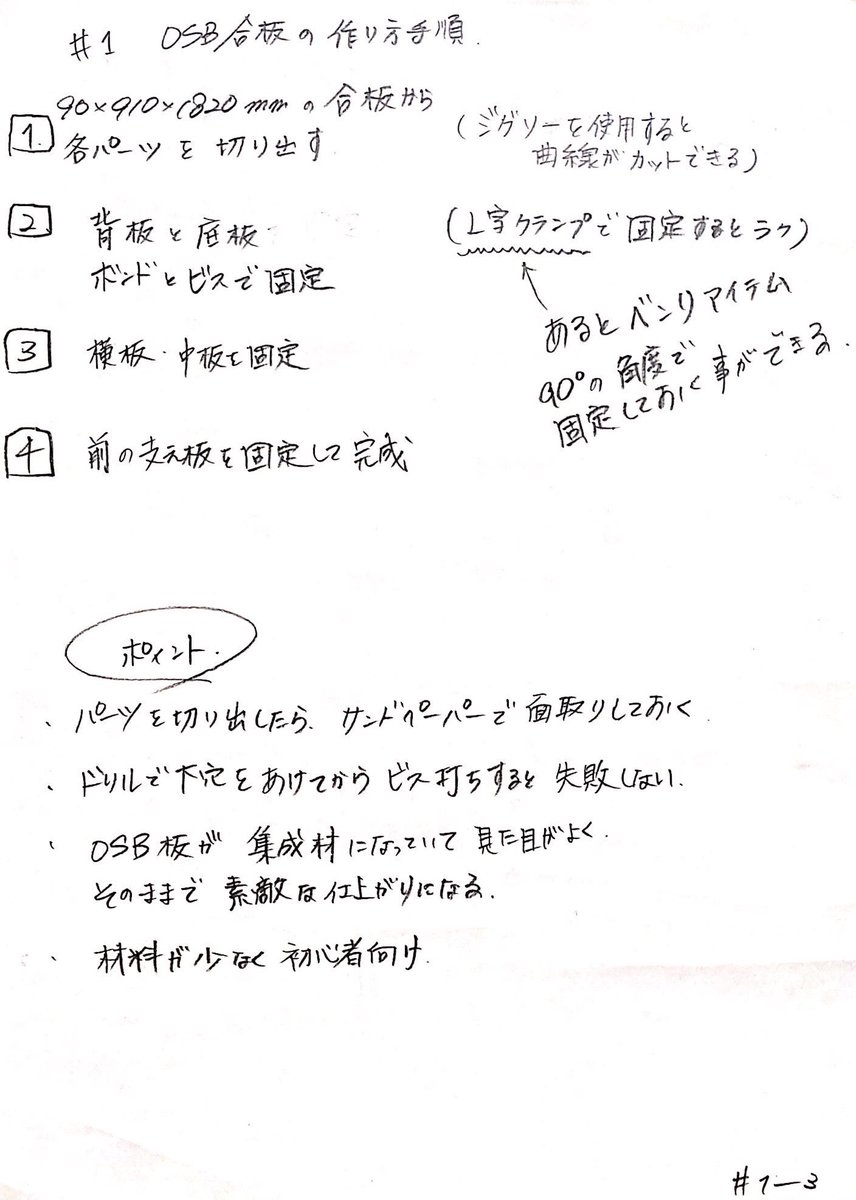 #1 OSB合板の作り方手順.
90×910×1820mmの合板から
1. 各パーツを切り出す
(ジグソーを使用すると
曲線がカットできる)
2 背板と底板
ボンドとビスで固定
(L字クランプで固定するとラク)
あるとベンリアイテム
90°の角度で
固定しておく事ができる.
3 横板・中板を固定
4 前の支え板を固定して完成
ポイント.
・パーツを切り出したら、サンドペーパーで面取りしておく
・ドリルで下穴をあけてからビス打ちすると失敗しない.
・OSB板が集成材になっていて見た目がよく.
そのままで素敵な仕上がりになる.
・材料が少なく初心者向け.
#1-3